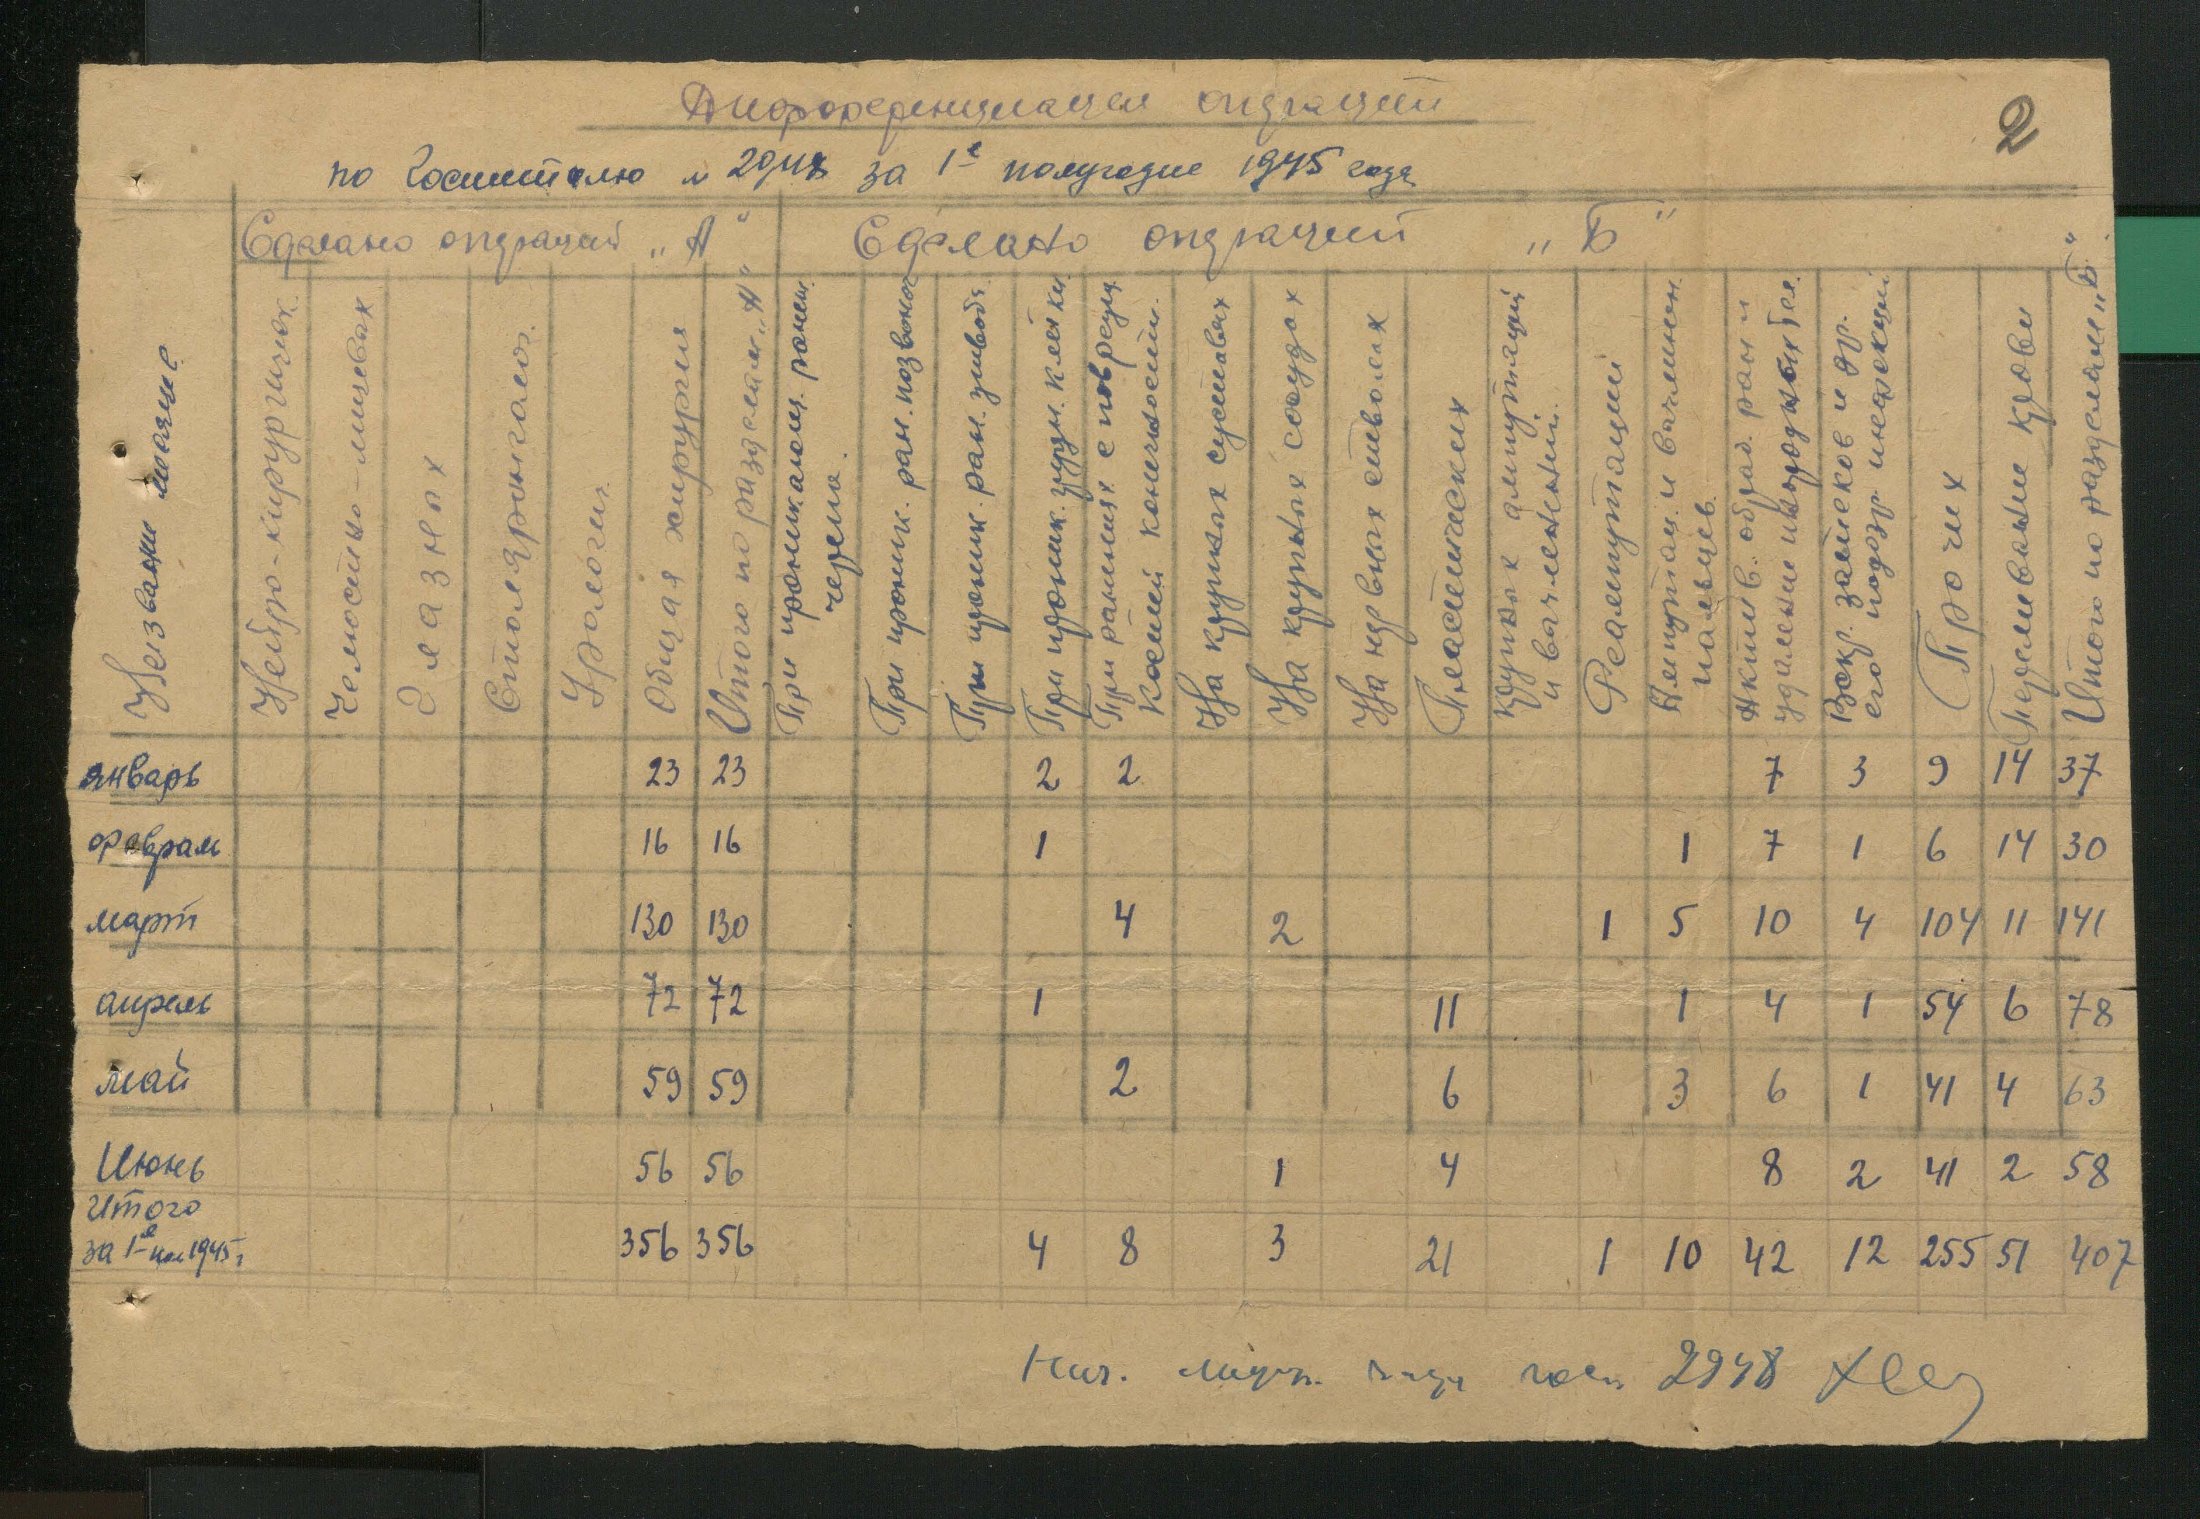 2
Дифференциация операций
по Госпиталю № 2948 за 1е полугодие 1945 года
Сделано операций „А“ Сделано операций „Б“
Название месяце
Нейро-хирургичок.
Челюстно-лицевах
Глазных
Столяронгалог.
Урологич
Общая хирургия
Итого по разделам „А“
При проник. ранен. черепа.
При проник. ран. позвоноч
При проник. ран. живота
При проник. груди. клетки
При ранениях с поврежд. Костей конечностей.
На крупных суставах
На крупных сосудах
На нервных стволах
Пластических
Крупных ампутаций и вычленений.
Реампутаций
Ампутац. и вычленен. пальцев
Актив. обраб. ран и удаление инородных тел.
Вскр. затеков и др. его подоз. инфекций
Прочих
Переливание крови
Итого по разделам „Б“
январь 23 23 2 2 7 3 9 14 37
феврам 16 16 1 1 7 1 6 14 30
март 130 130 4 2 1 5 10 4 104 11 141
апрель 72 72 1 11 1 4 1 54 6 78
май 59 59 2 6 3 6 1 41 4 63
Июнь 56 56 1 4 8 2 41 2 58
Итого
за 1е пол 1945г 356 356 4 8 3 21 1 10 42 12 255 51 407
Нач. госп 2948